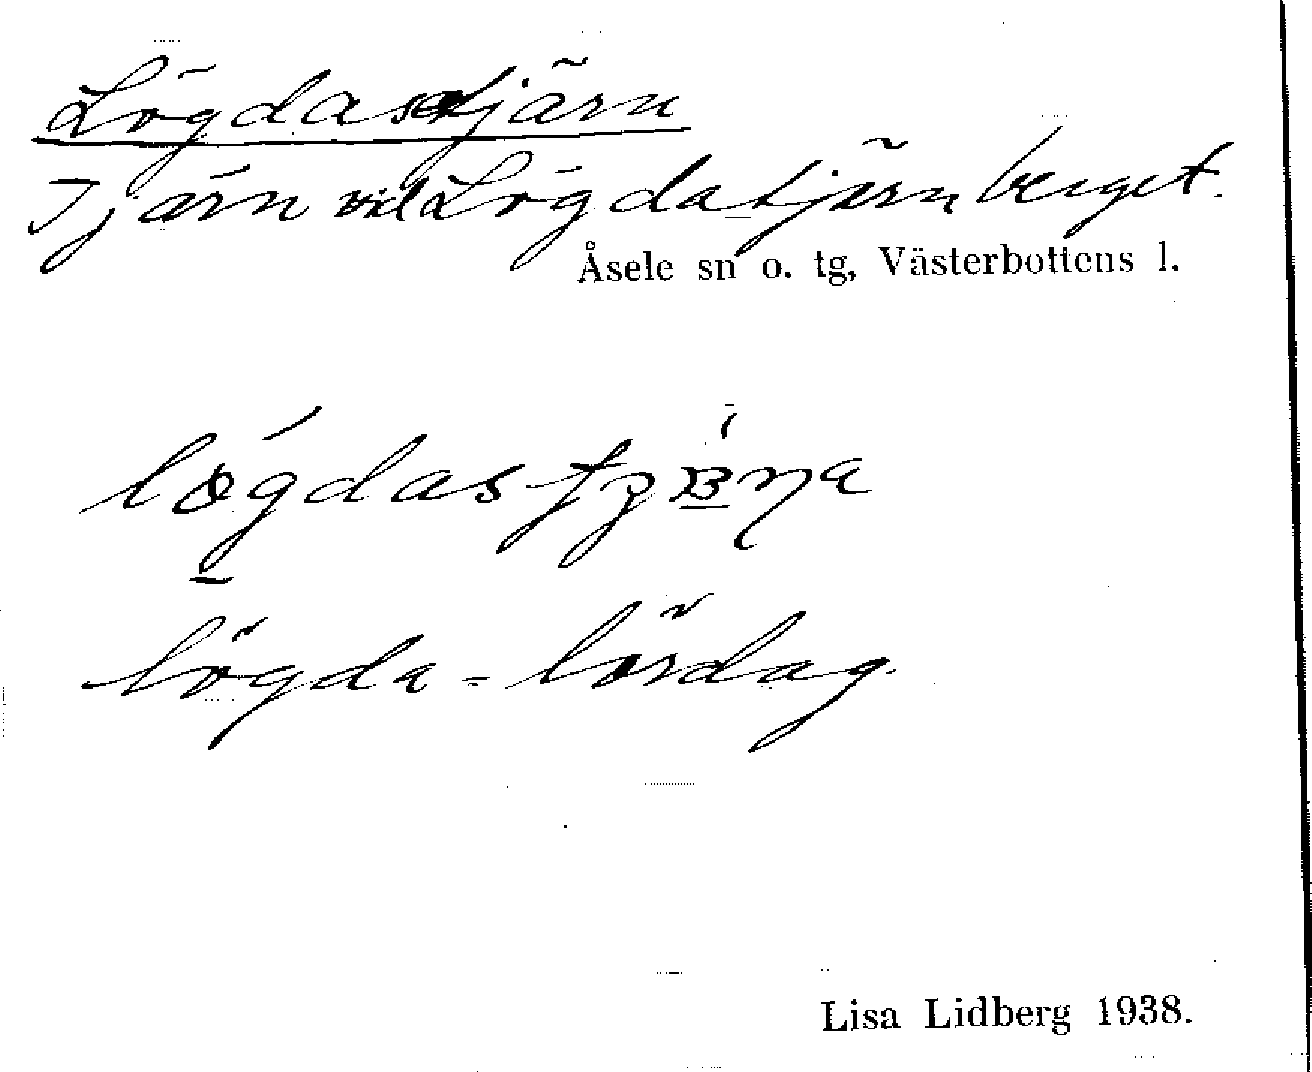 Lögdastjärn
Tjärn vid Lögdatjärnberget.
Åsele sn o. tg, Västerbottens l.
lögda = lördag.
Lisa Lidberg 1938.